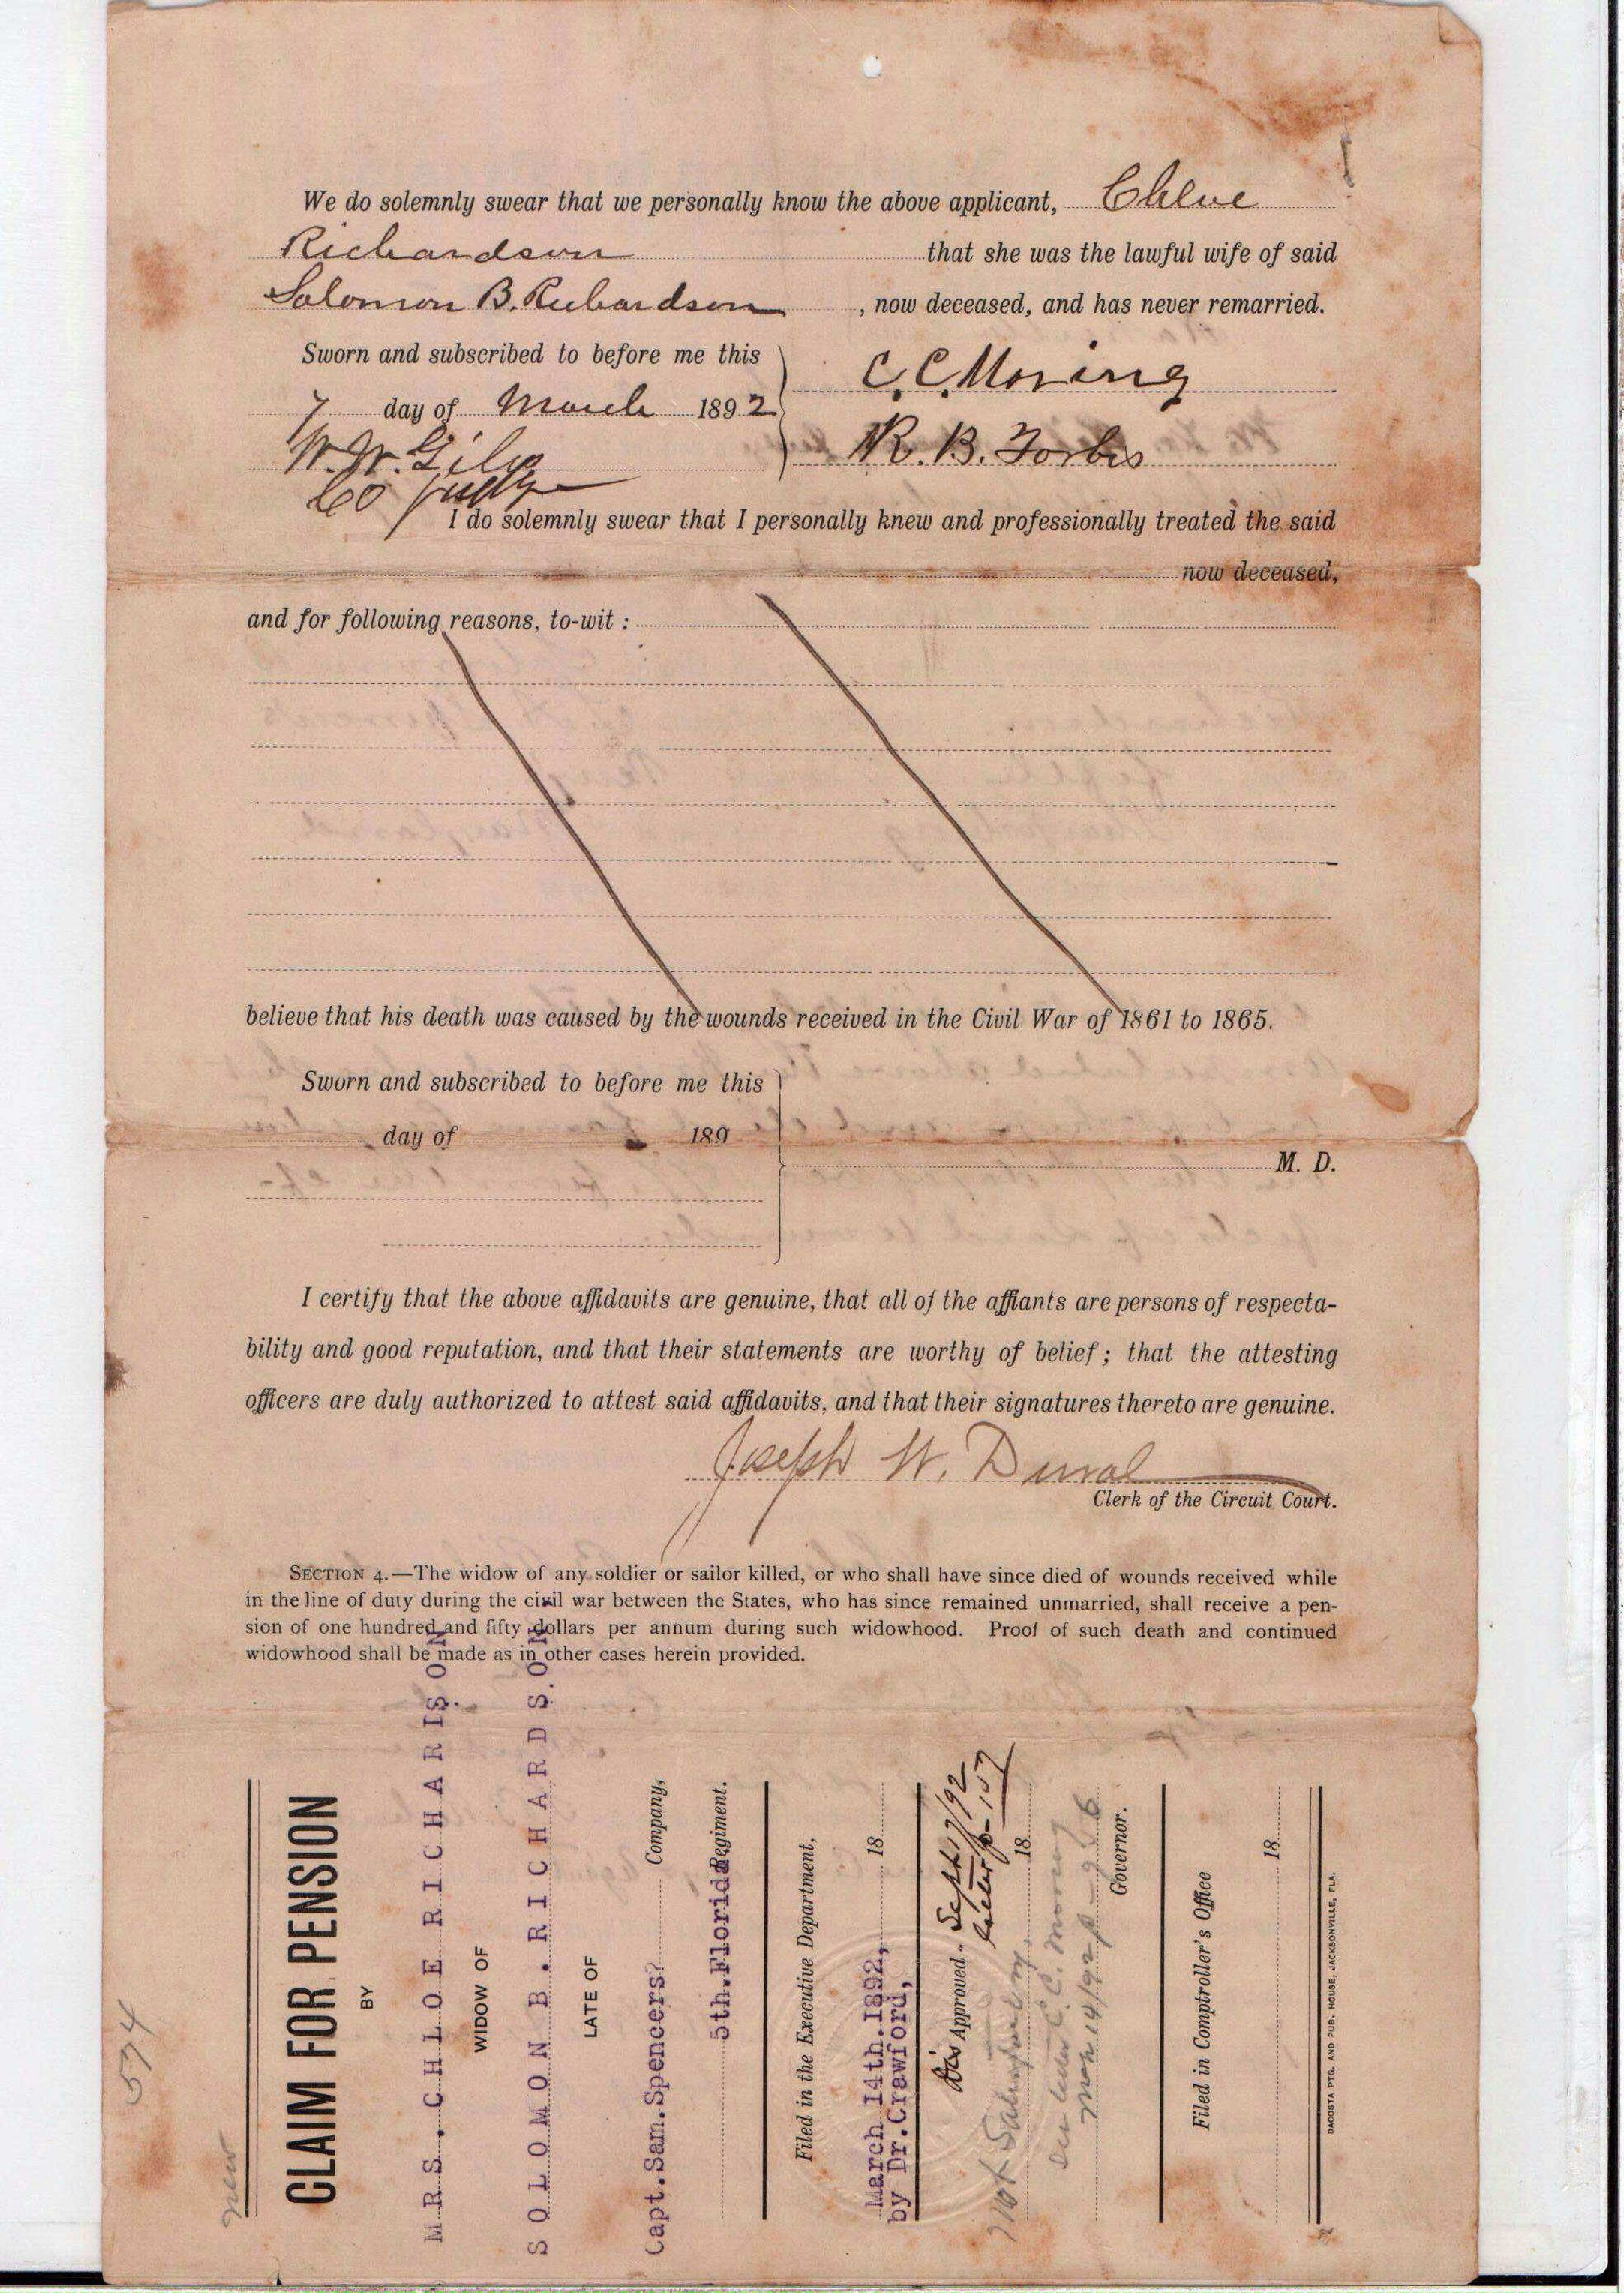 We do solemnly swear that we personally know the above applicant, Chloe
Richardson that she was the lawful wife of said
Solomon B. Richardson, now deceased, and has never remarried.
Sworn and subscribed to before me this
7 day of March 1892
C. C. Moring
R. B. Forbes
Co Judge
I do solemnly swear that I personally knew and professionally treated the said
now deceased,
and for following reasons, to-wit :
believe that his death was caused by the wounds received in the Civil War of 1861 to 1865.
Sworn and subscribed to before me this
day of 189
M. D.
I certify that the above affidavits are genuine, that all of the affiants are persons of respecta-
bility and good reputation, and that their statements are worthy of belief ; that the attesting
officers are duly authorized to attest said affidavits, and that their signatures thereto are genuine.
Joseph W. Duval
Clerk of the Circuit Court.
SECTION 4.—The widow of any soldier or sailor killed, or who shall have since died of wounds received while
in the line of duty during the civil war between the States, who has since remained unmarried, shall receive a pen-
sion of one hundred and fifty dollars per annum during such widowhood. Proof of such death and continued
widowhood shall be made as in other cases herein provided.
new 574
CLAIM FOR PENSION
BY
MRS. CHLOE RICHARISON
WIDOW OF
SOLOMON B. RICHARDS.ON
LATE OF
Capt.Sam.Spencers? Company,
5th.Florida Regiment.
Filed in the Executive Department,
March 14th.1892, 18
by Dr.Crawford,
Dis Approved - Sept 17/92
18
See letter C. C. Moring
Governor.
Filed in Comptroller's Office
18
DACOSTA PTG. AND PUB. HOUSE, JACKSONVILLE, FLA.